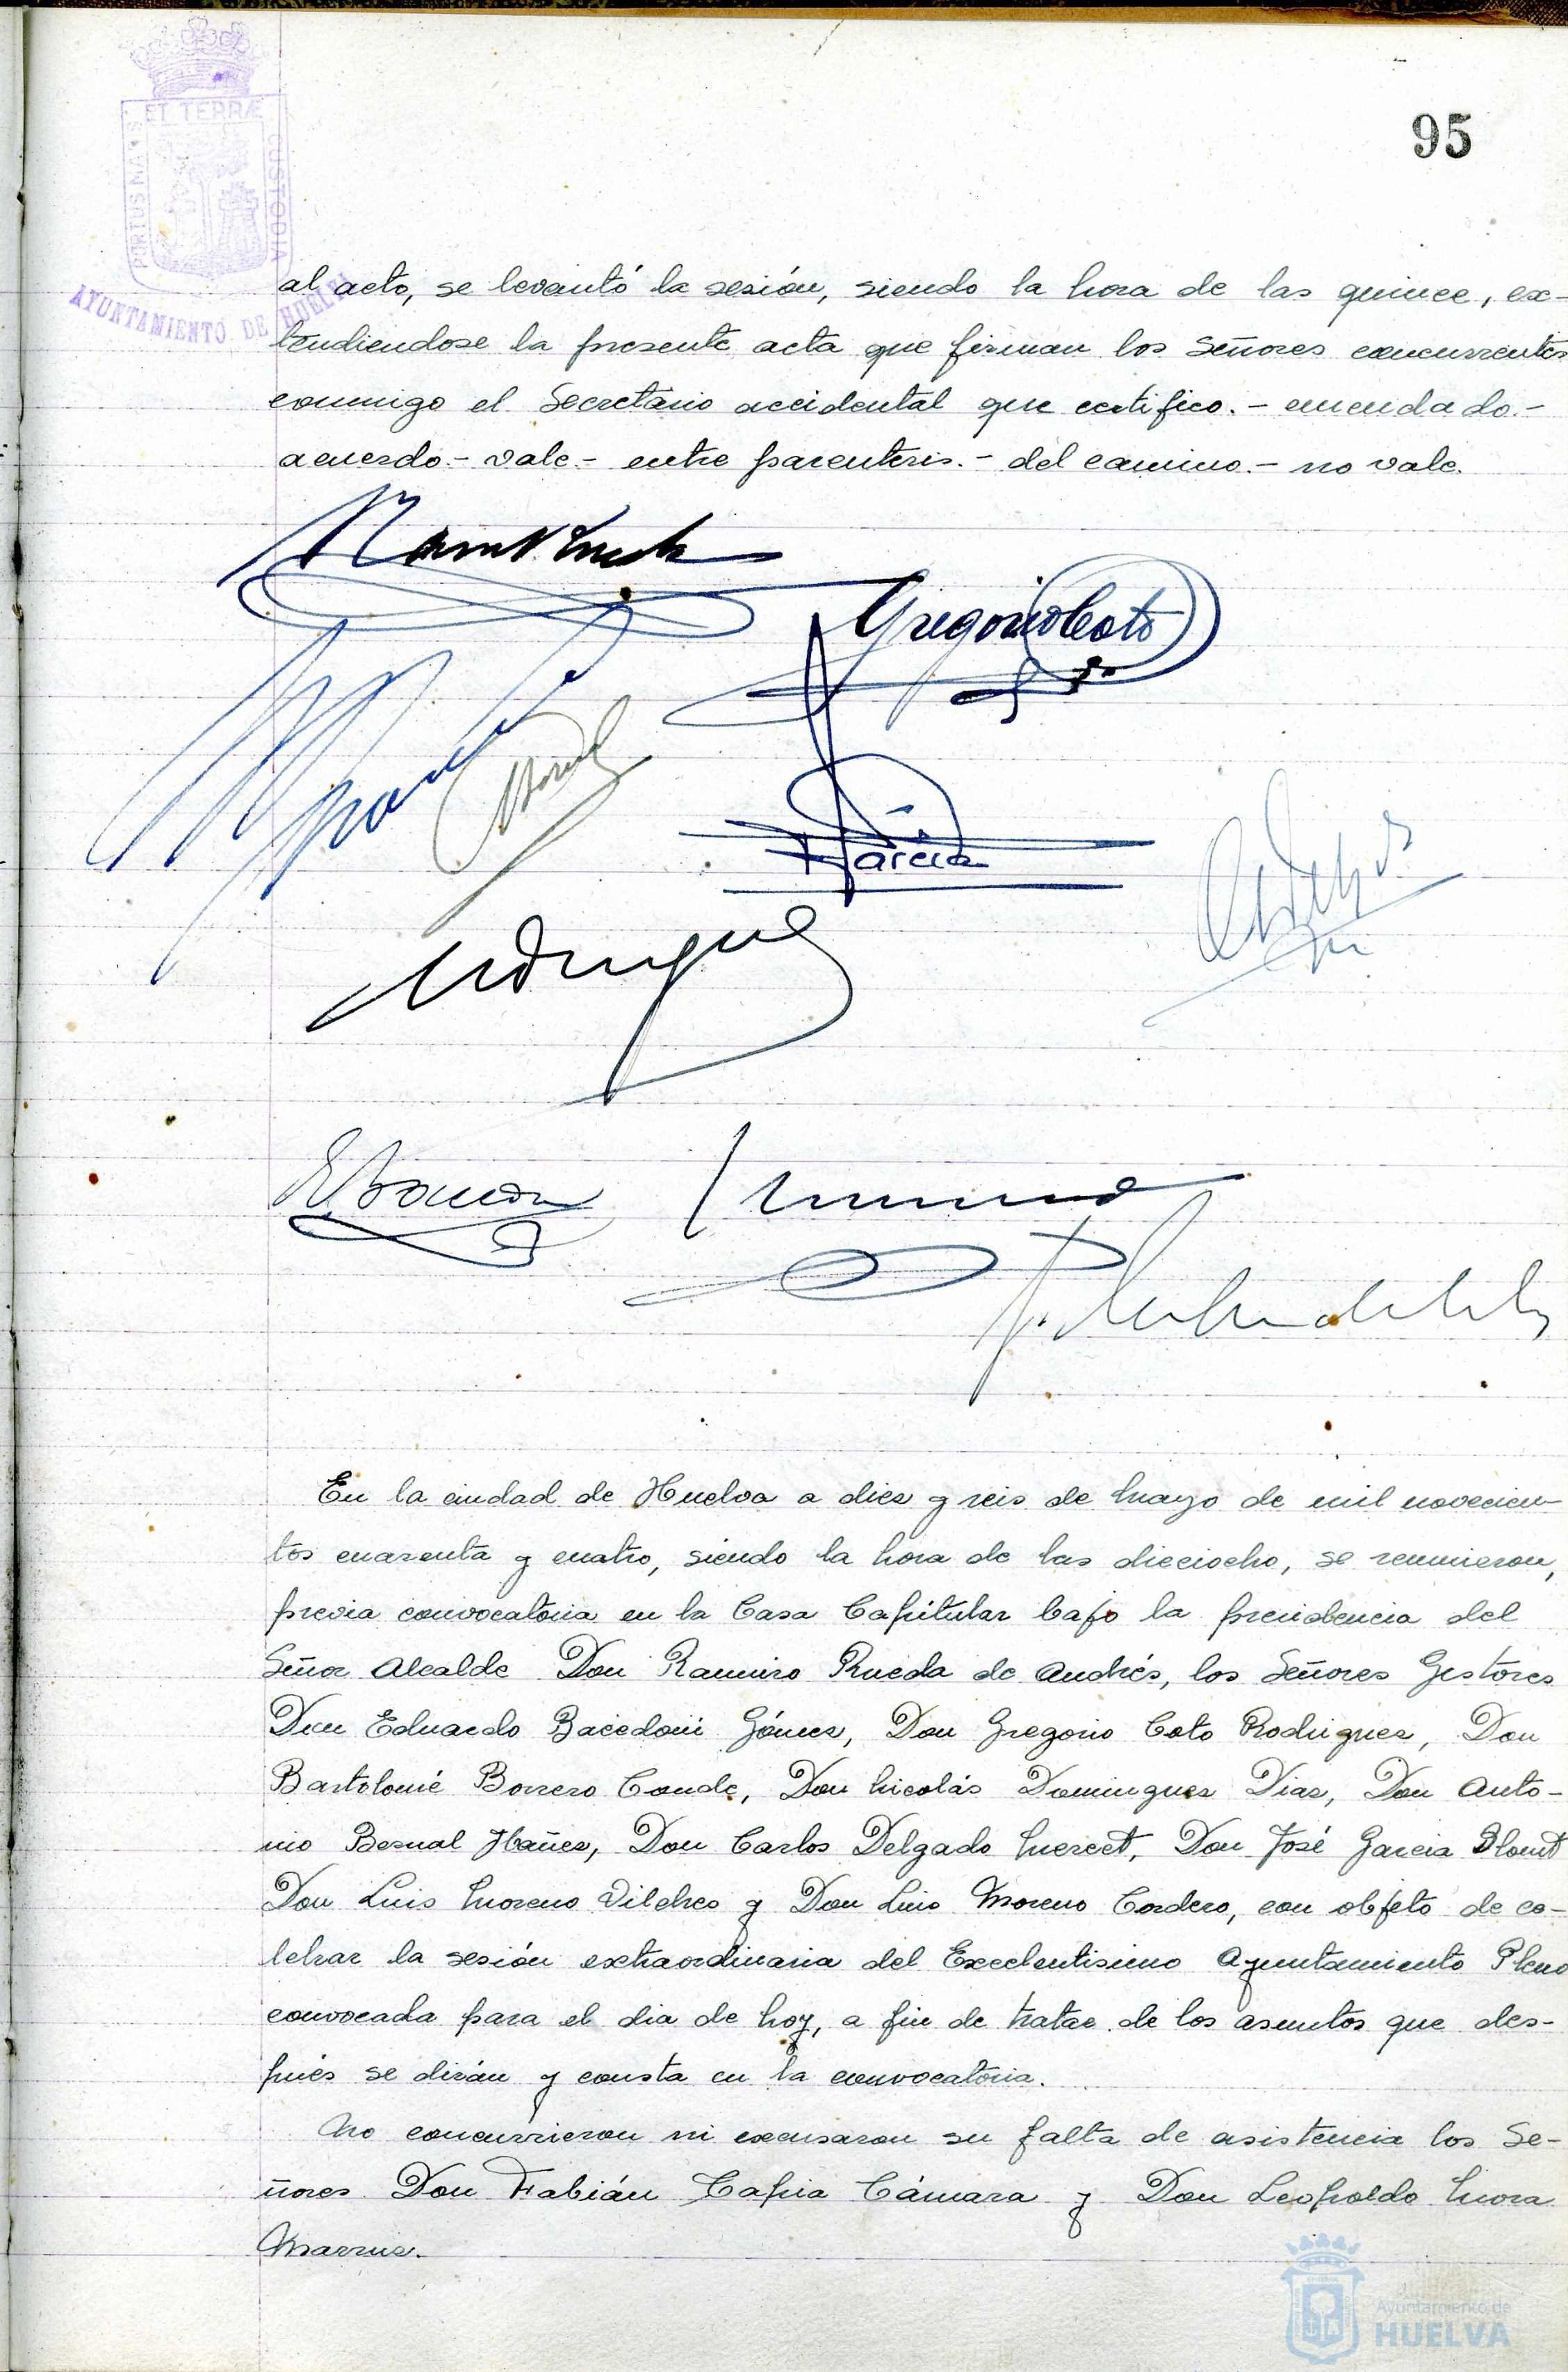 95
ET TERRÆ
PORTUS MARIS
CUSTODIA
AYUNTAMIENTO DE HUELVA
al acto, se levantó la sesión, siendo la hora de las quince, ex-
tendiendose la presente acta que firman los Señores concurrentes
conmigo el Secretario accidental que certifico.- enmendado.-
acuerdo.- vale.- entre parentesis.- del camino.- no vale.
Gregorio Coto
García
En la ciudad de Huelva a diez y seis de Mayo de mil novecien-
tos cuarenta y cuatro, siendo la hora de las dieciocho, se reunieron,
previa convocatoria en la Casa Capitular bajo la presidencia del
Señor Alcalde Don Ramiro Rueda de Andrés, los Señores Gestores
Don Eduardo Bacedoni Gómez, Don Gregorio Coto Rodriguez, Don
Bartolomé Borrero Conde, Don Nicolás Dominguez Diaz, Don Anto-
nio Bernal Ibañez, Don Carlos Delgado Mercet, Don José Garcia Blont
Don Luis Moreno Vilches y Don Luis Moreno Cordero, con objeto de ce-
lebrar la sesión extraordinaria del Excelentisimo Ayuntamiento Pleno
convocada para el dia de hoy, a fin de tratar de los asuntos que des-
pués se dirán y consta en la convocatoria.
No concurrieron ni excusaron su falta de asistencia los Se-
ñores Don Fabián Tapia Cámara y Don Leopoldo Mora
Marruz.
Ayuntamiento de
HUELVA